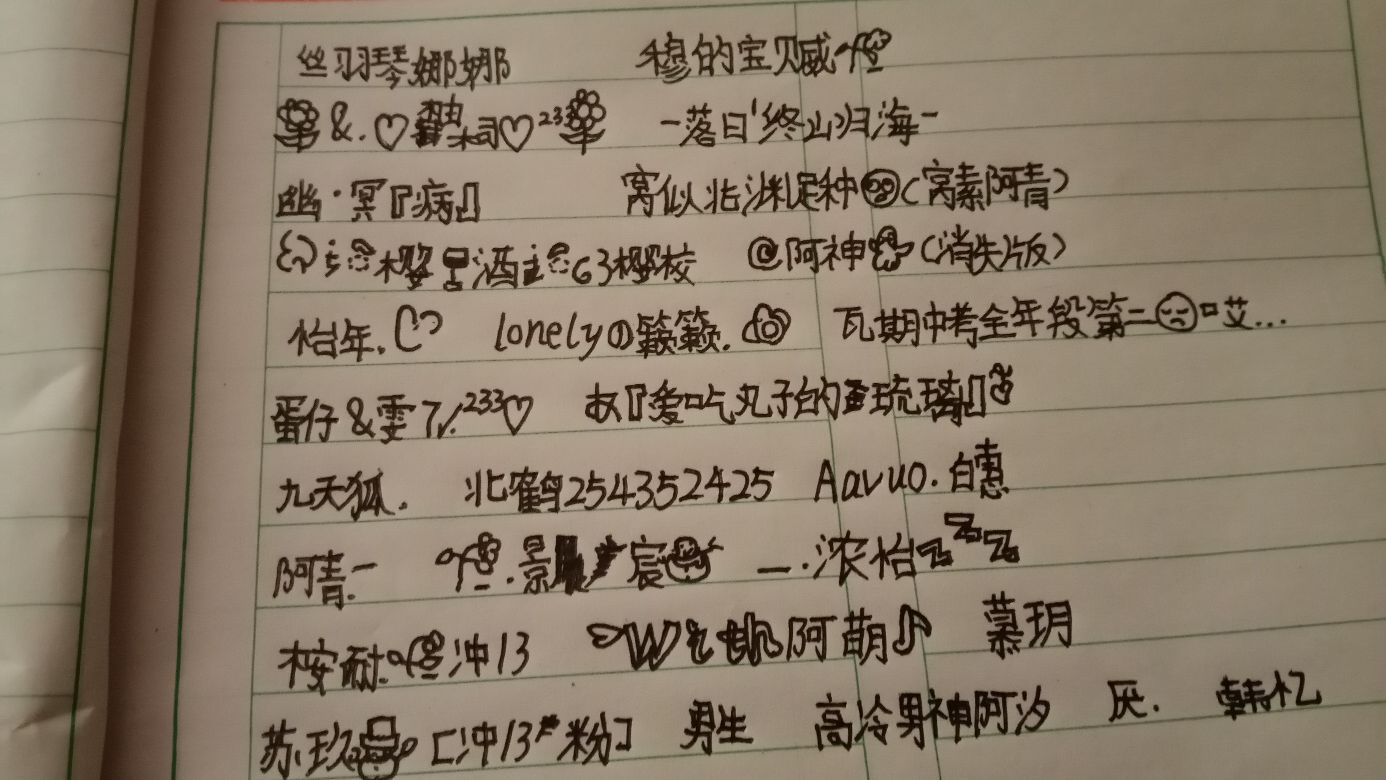 丝羽琴娜娜 穆的宝贝戚
&.♡ 祠♡²³³ -落日'终山归海-
幽·冥『病』 窝似北渊足种(窝素阿青)
樱 酒 63樱校 @阿神(消失版)
怡年. lonelyの籁籁. 瓦期中考全年段第二口艾...
蛋仔&雯 7%²³³♡ 『爱吃丸子的 琉璃』
九天狐. 北鹤254352425 Aavuo.白惠
阿青.- .景 宸 —.浓怡zzz
桉耐.冲13 阿萌♪ 慕玥
苏.玖 [冲13*粉] 男生 高冷男神阿汐 厌. 韩忆